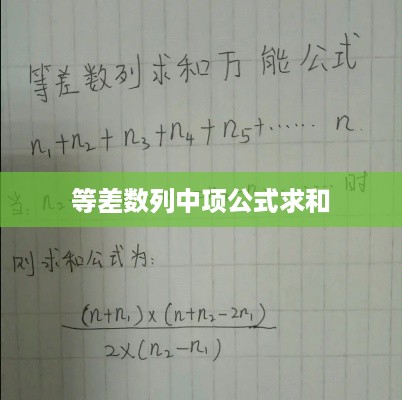 等差数列求和万能公式
n₁+n₂+n₃+n₄+n₅+…… n
当: n₂ 时
等差数列中项公式求和
则求和公式为:
(n+n₁)×(n+n₂-2n₁)
2×(n₂-n₁)